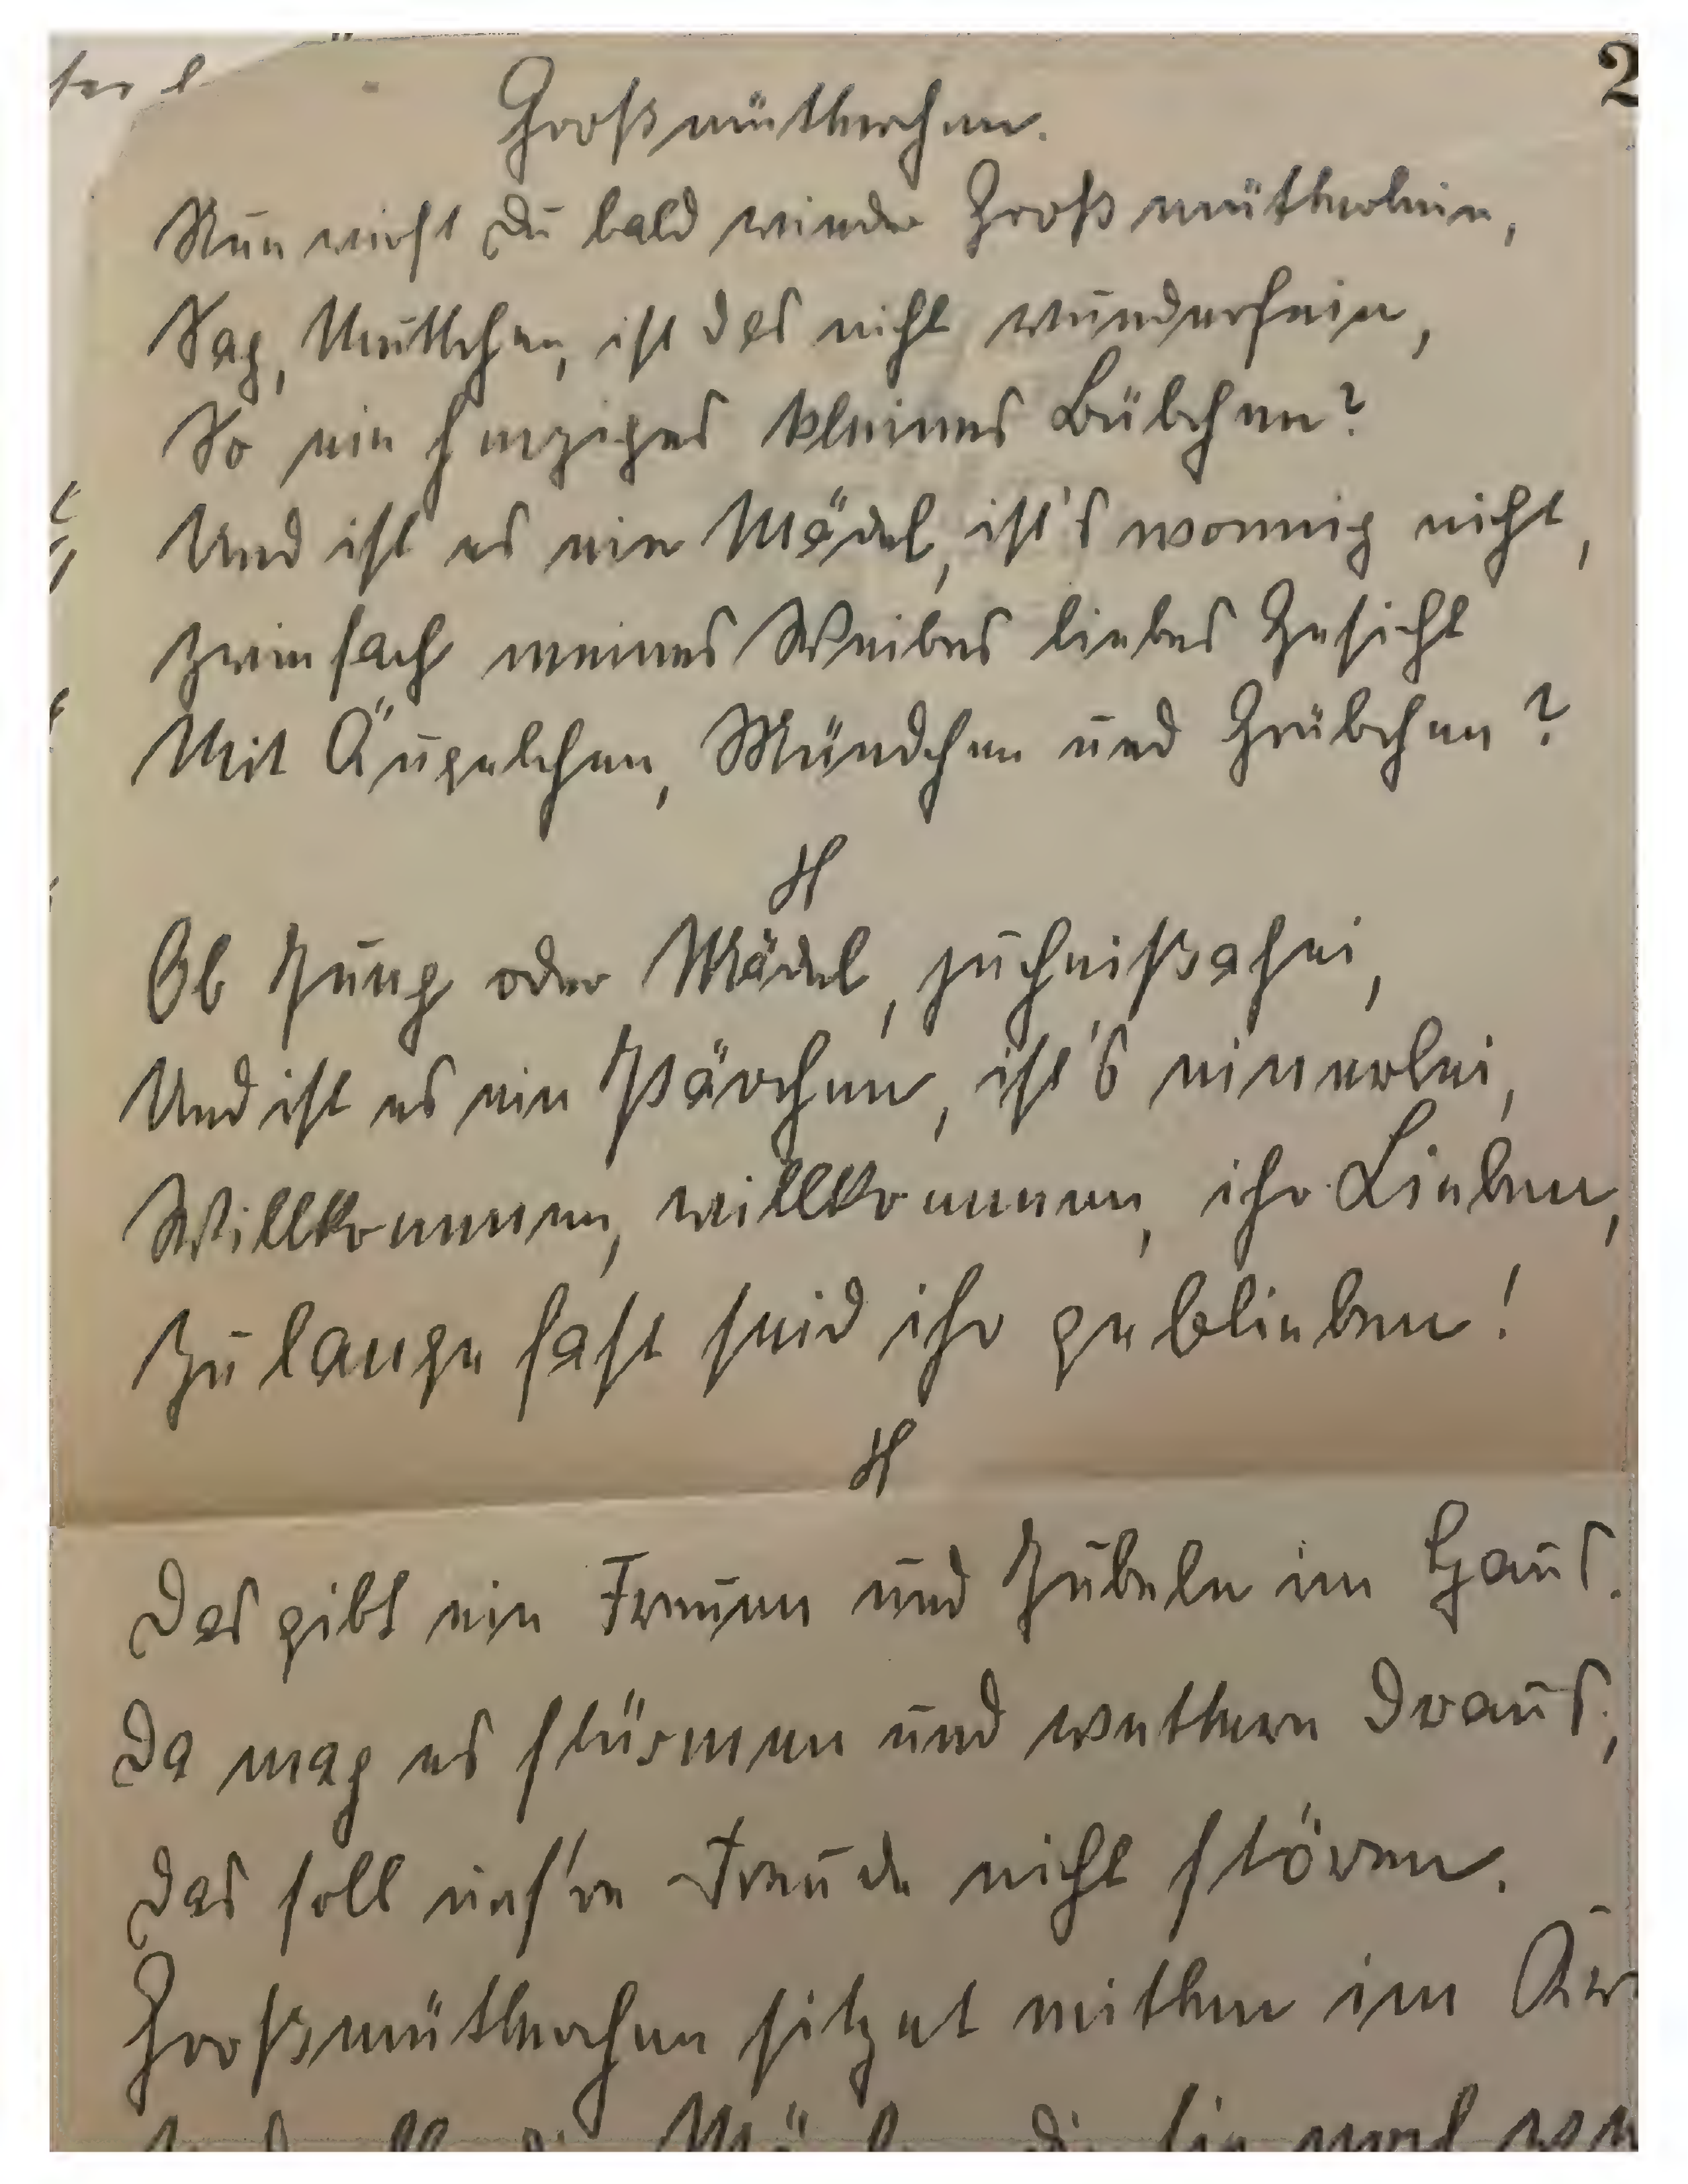 2
Großmütterchen.
Nun wirst Du bald wieder Großmütterlein,
Sag, Muttchen, ist das nicht wunderfein,
So ein herziges kleines Bübchen?
Und ist es ein Mädel, ist's wonnig nicht,
Zweifach meines Weibes liebes Gesicht
Mit Äugelchen, Mündchen und Grübchen?
Ob Jung oder Mädel, juchheißahei,
Und ist es ein Pärchen, ist's einerlei,
Willkommen, willkommen, ihr Lieben,
Zu lange fast seid ihr geblieben!
Das gibt ein Freuen und Jubeln im Haus.
Da mag es stürmen und wettern draus,
Das soll uns're Freude nicht stören.
Großmütterchen sitzet mitten im